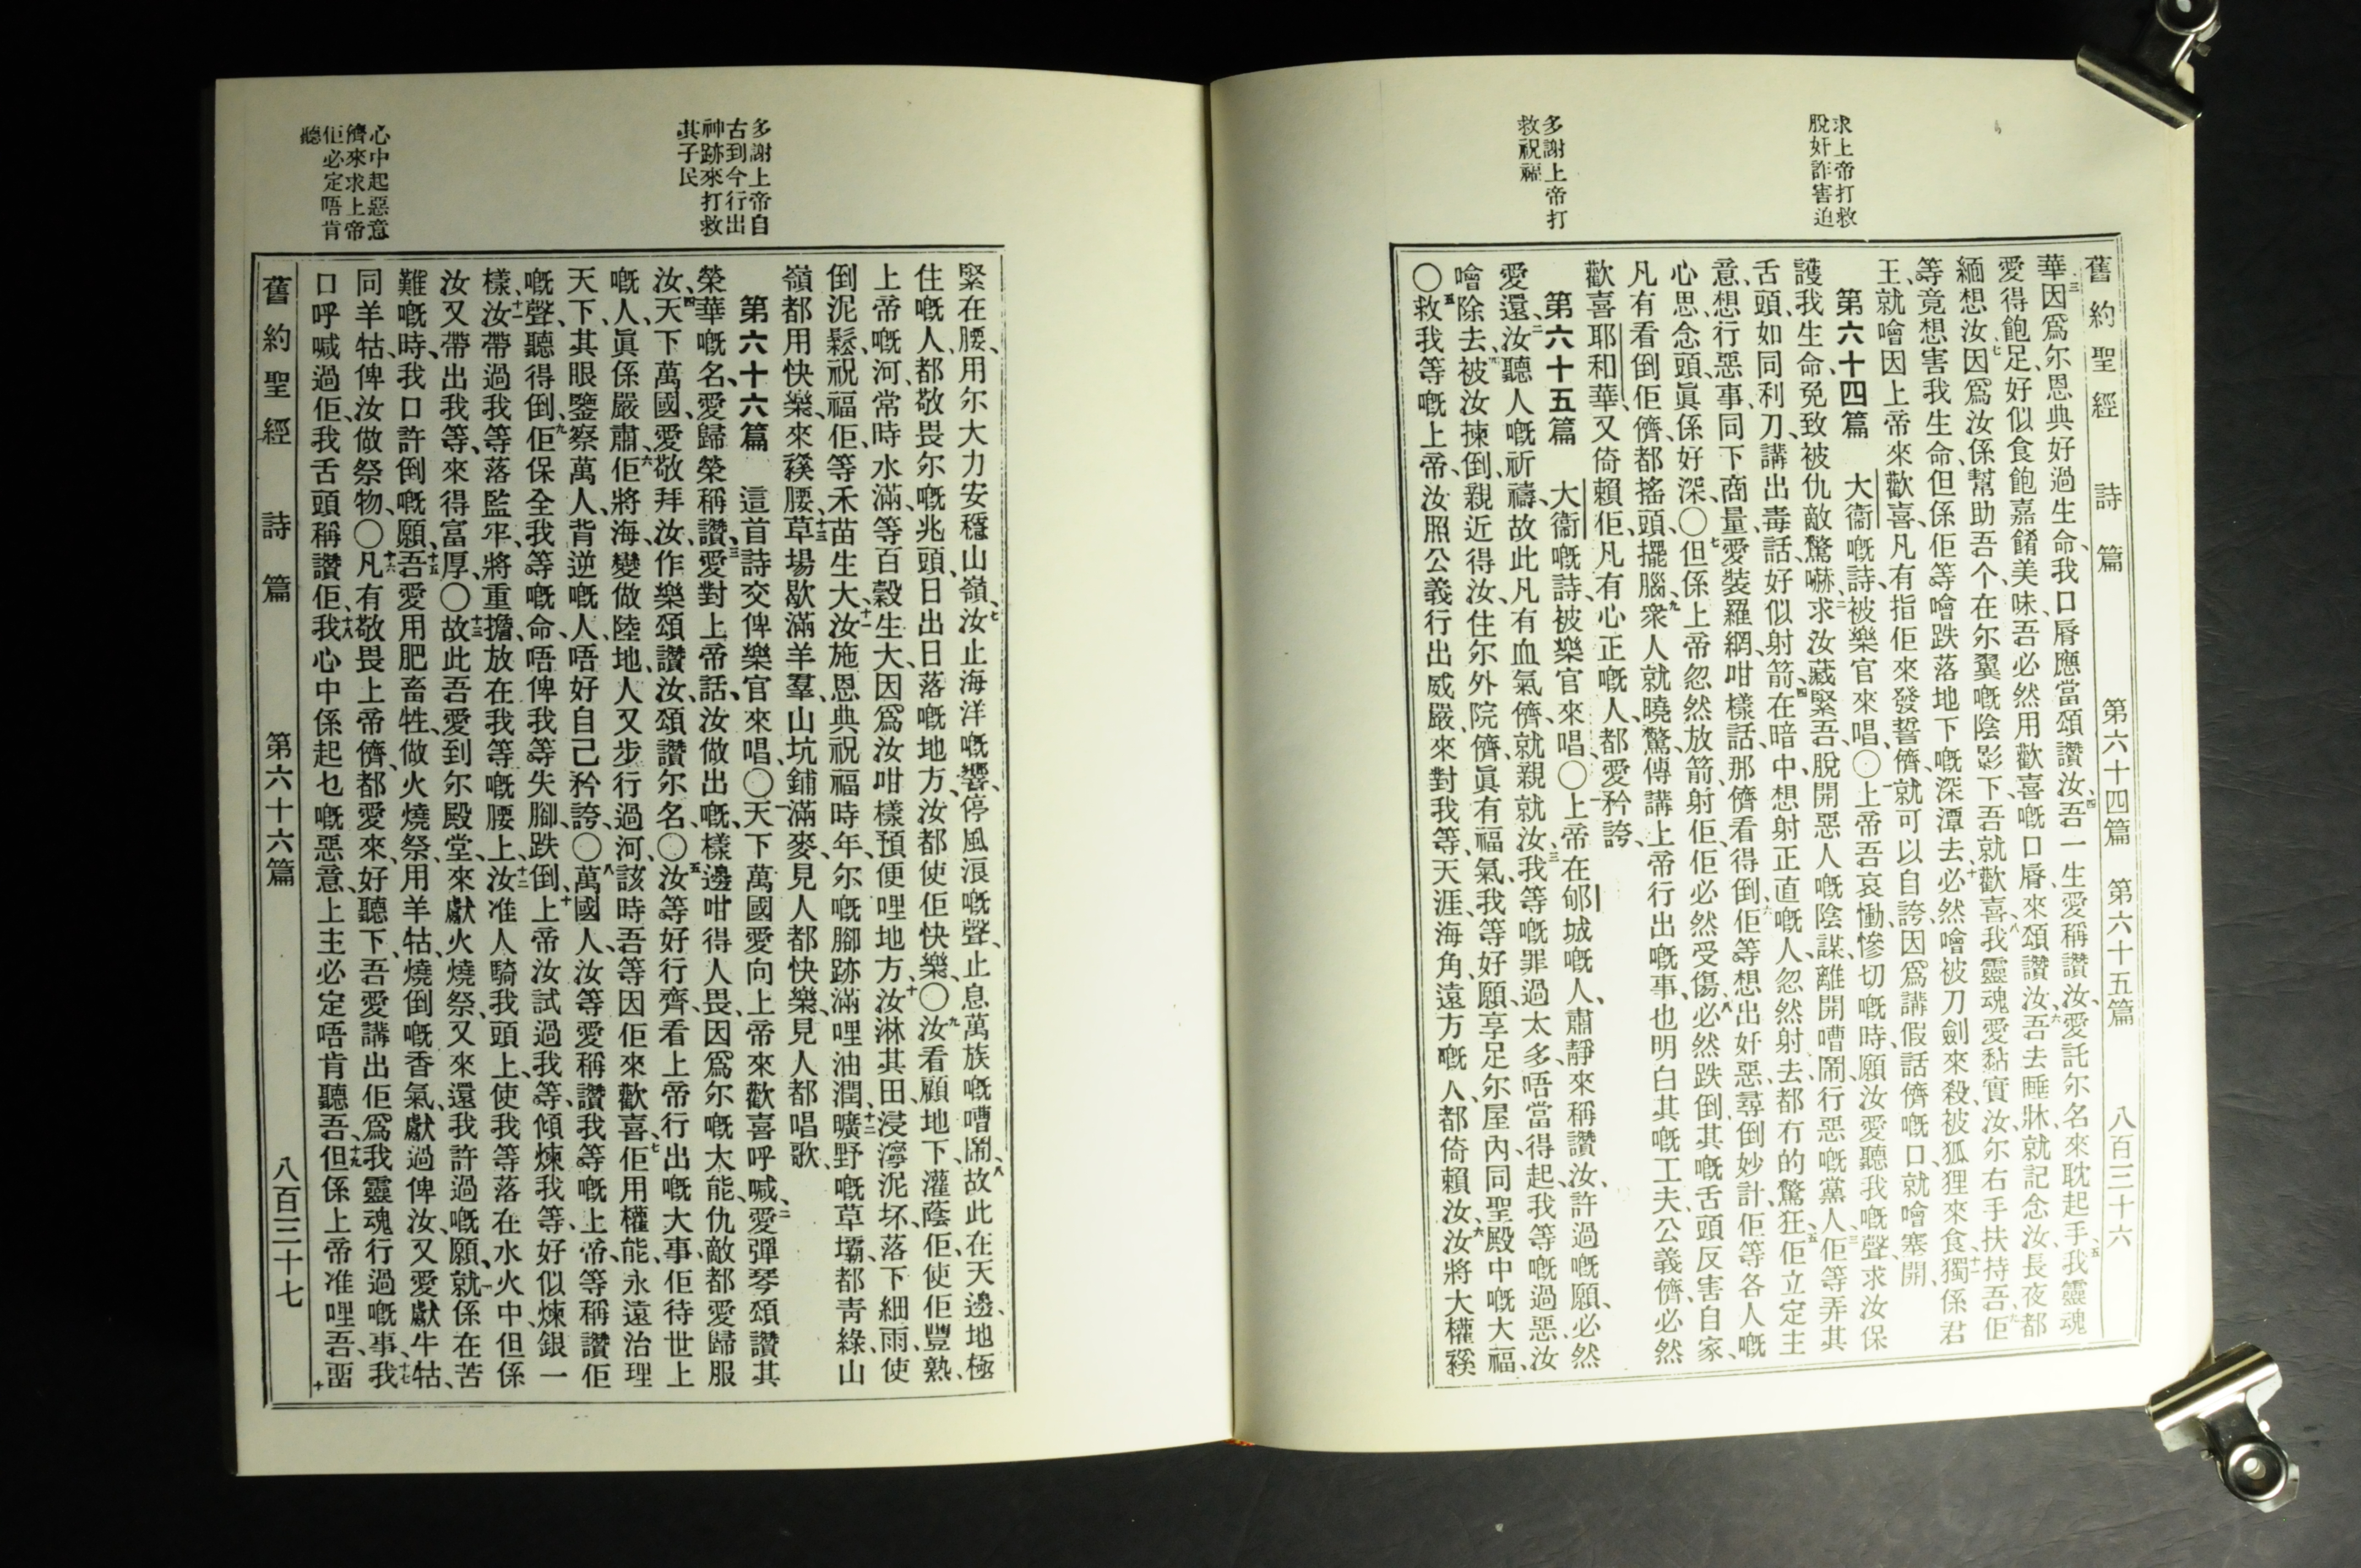 求上帝打救
脫奸詐害迫
多謝上帝打
救祝福
舊約聖經 詩篇 第六十四篇 第六十五篇 八百三十六
華、三因爲尔恩典好過生命、我口脣應當頌讚汝、四吾一生愛稱讚汝、愛託尔名來耽起手、五我靈魂
愛得飽足、好似食飽嘉餚美味、吾必然用歡喜嘅口脣、來頌讚汝、六吾去睡牀、就記念汝、長夜都
緬想汝、七因爲汝係幫助吾个、在尔翼嘅陰影下、吾就歡喜、八我靈魂愛黏實汝、尔右手扶持吾、九佢
等竟想害我生命、但係佢等噲跌落地下嘅深潭去、十必然噲被刀劍來殺、被狐狸來食、十一獨係君
王、就噲因上帝來歡喜、凡有指佢來發誓儕、就可以自誇、因爲講假話儕嘅口、就噲塞開
第六十四篇 大衞嘅詩、被樂官來唱、〇一上帝吾哀慟慘切嘅時、願汝愛聽我嘅聲、求汝保
護我生命、免致被仇敵驚嚇、二求汝藏緊吾、脫開惡人嘅陰謀、離開嘈鬧、行惡嘅黨人、三佢等弄其
舌頭、如同利刀、講出毒話、好似射箭、四在暗中、想射正直嘅人、忽然射去、都冇的驚狂、五佢立定主
意、想行惡事、同下商量、愛裝羅網、咁樣話、那儕看得倒、六佢等想出奸惡、尋倒妙計、佢等各人嘅
心思念頭、眞係好深、〇七但係上帝忽然放箭射佢、佢必然受傷、八必然跌倒、其嘅舌頭反害自家、
凡有看倒佢儕、都搖頭擺腦、九衆人就曉驚、傳講上帝行出嘅事、也明白其嘅工夫、公義儕、必然
歡喜耶和華、又倚賴佢、凡有心正嘅人、都愛矜誇、
第六十五篇 大衞嘅詩、被樂官來唱、〇一上帝在郇城嘅人、肅靜來稱讚汝、許過嘅願、必然
愛還、二汝聽人嘅祈禱、故此凡有血氣儕、就親就汝、三我等嘅罪過太多、唔當得起、我等嘅過惡、汝
噲除去、四被汝揀倒、親近得汝、住尔外院儕、眞有福氣、我等好願享足尔屋內、同聖殿中嘅大福、
〇五救我等嘅上帝、汝照公義行出威嚴、來對我等、天涯、海角、遠方嘅人、都倚賴汝、六汝將大權𧞫
多謝上帝自
古到今行出
神跡來打救
其子民
心中起惡意
儕來求上帝
佢必定唔肯
聽
緊在腰、用尔大力安穩山嶺、七汝止海洋嘅響、停風浪嘅聲、止息萬族嘅嘈鬧、八故此在天邊、地極
住嘅人、都敬畏尔嘅兆頭、日出日落嘅地方、汝都使佢快樂、〇九汝看顧地下、灌蔭佢、使佢豐熟、
上帝嘅河、常時水滿、等百穀生大、因爲汝咁樣預便哩地方、十汝淋其田、浸濘泥坏、落下細雨、使
倒泥鬆、祝福佢、等禾苗生大、十一汝施恩典祝福時年、尔嘅腳跡滿哩油潤、十二曠野嘅草壩、都靑綠、山
嶺都用快樂、來𧞫腰、十三草場歇滿羊羣、山坑鋪滿麥、見人都快樂、見人都唱歌、
第六十六篇 這首詩交俾樂官來唱、〇一天下萬國愛向上帝來歡喜呼喊、二愛彈琴頌讚其
榮華嘅名、愛歸榮稱讚、三愛對上帝話、汝做出嘅、樣邊咁得人畏、因爲尔嘅大能、仇敵都愛歸服
汝、四天下萬國、愛敬拜汝、作樂頌讚汝、頌讚尔名、〇五汝等好行齊、看上帝行出嘅大事、佢待世上
嘅人、眞係嚴肅、六佢將海、變做陸地、人又步行過河、該時吾等因佢來歡喜、七佢用權能、永遠治理
天下、其眼鑒察萬人、背逆嘅人、唔好自己矜誇、〇八萬國人、汝等愛稱讚我等嘅上帝、等稱讚佢
嘅聲、聽得倒、九佢保全我等嘅命、唔俾我等失腳、跌倒、十上帝汝試過我等、傾煉我等、好似煉銀一
樣、十一汝帶過我等落監牢、將重擔、放在我等嘅腰上、十二汝准人騎我頭上、使我等落在水火中、但係
汝又帶出我等、來得富厚、〇十三故此吾愛到尔殿堂、來獻火燒祭、又來還我許過嘅願、十四就係在苦
難嘅時、我口許倒嘅願、十五吾愛用肥畜牲、做火燒祭、用羊牯燒倒嘅香氣、獻過俾汝、又愛獻牛牯、
同羊牯、俾汝做祭物、〇十六凡有敬畏上帝儕、都愛來、好聽下、吾愛講出佢爲我靈魂行過嘅事、十七我
口呼喊過佢、我舌頭稱讚佢、十八我心中係起乜嘅惡意、上主必定唔肯聽吾、十九但係上帝准哩吾、畱
舊約聖經 詩篇 第六十六篇 八百三十七